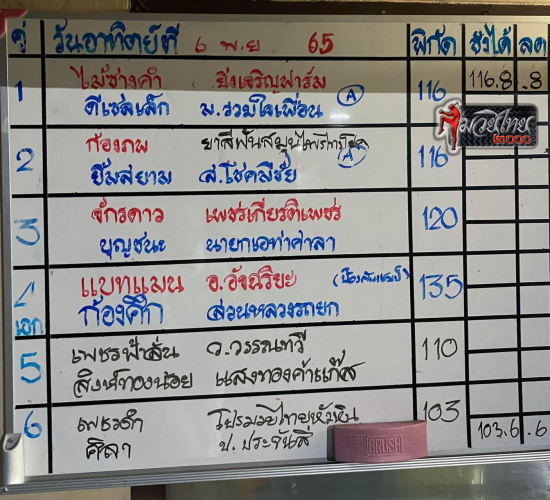 คู่ วันอาทิตย์ที่ 6 พ.ย 65 พิกัด ชั่งได้ ลด
1 ไม้ซางคำ ยิ่งเจริญฟาร์ม 116 116.8 .8
ดีเซลเล็ก ม.รวมใจเพื่อน A
มวยไทย ๒๐๐๐
2 ก้องภพ ยาสีฟันสมุนไพร
ยิ้มสยาม ส.โชคมีชัย A 116
3 จักรดาว เพชรเกียรติเพชร 120
บุญชนะ นายกเอท่าศาลา
4 แบทแมน อ.อัจฉริยะ 135
เอก ก้องศึก สวนหลวงรถยก
5 เพชรฟ้าลั่น ว.วรรณทวี 110
สิงห์ทองน้อย แสงทองค้าแก๊ส
6 เพชรดำ โปรมวยไทยหัวหิน 103
ศิลา ป. 103.6 .6
BRUSH